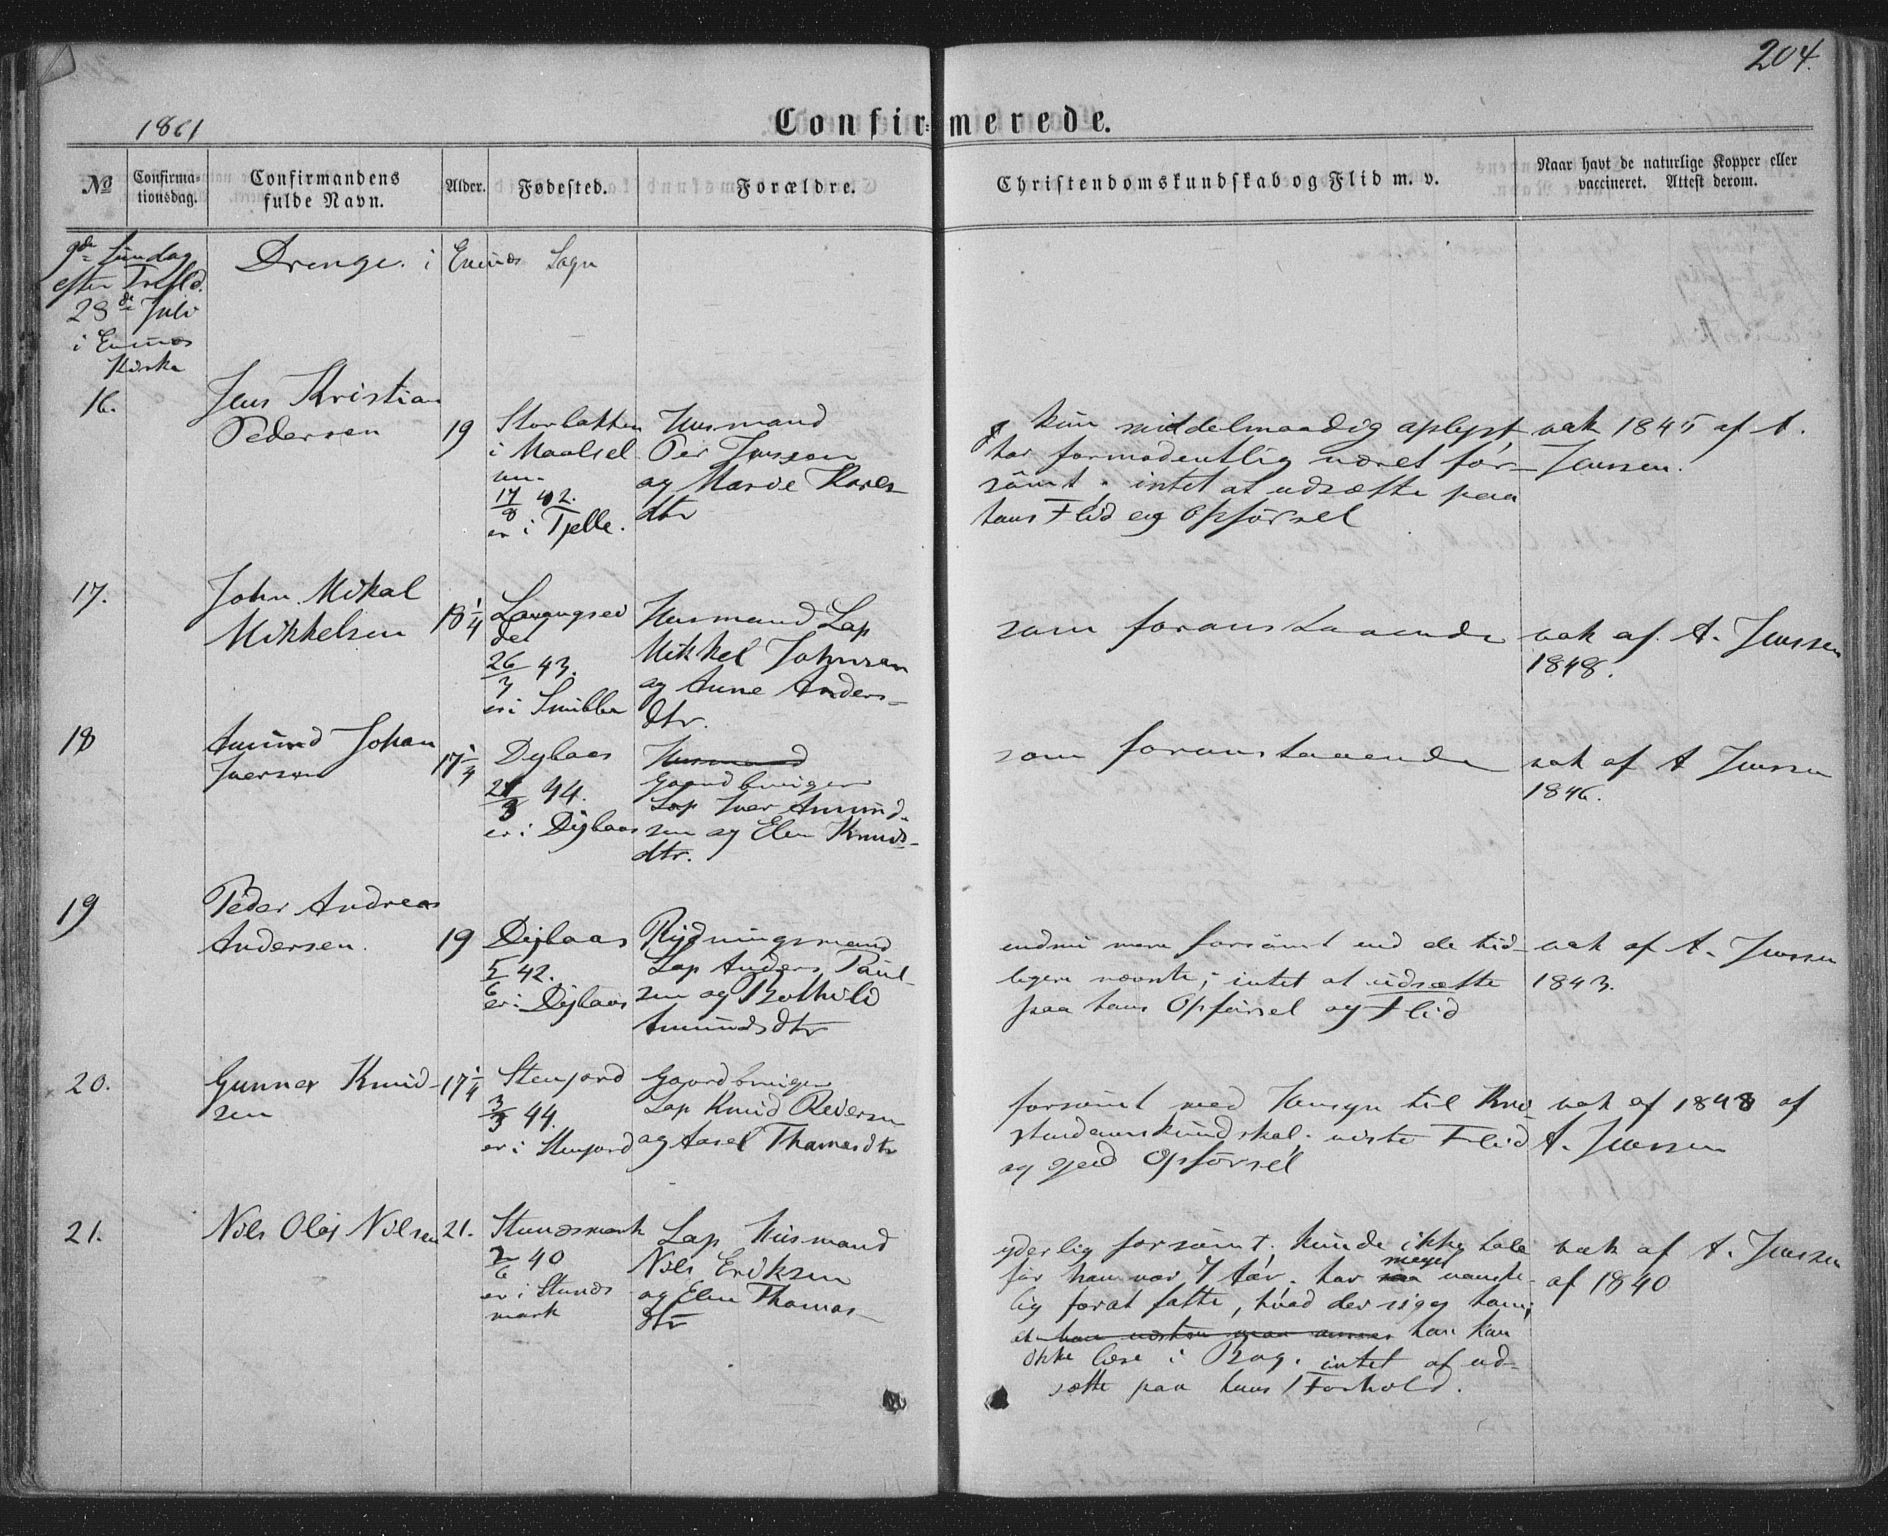 204.
1861
Confirmerede.
No
Confirmationsdag.
Confirmandens fulde Navn.
Alder.
Fødested.
Forældre.
Christendomskundskab og Flid m. v.
Naar havt de naturlige Kopper eller vaccineret. Attest derom.
9de Sundag
efter Trefld.
28de Juli
i Evenæs
Kirke
Drenge i Evenæs Sogn
16.
Jens Kristian
Pedersen
19
i Maalsel
17/8 42.
er i Tjelle.
Husmand
Per Jensson
og Maroe
dtr
kun middelmaadig oplyst,
har formodentlig været for-
sømt. intet at udsætte paa
hans Flid og Opførsel
vak 1845 af A.
Jenssen.
17.
John Mikal
Mikkelsen
18 1/4
Lavangsei
det
26/3 43.
er i Snubba
Husmand Lap
Mikkel Johnsen
og Anne Anders-
dtr.
som foranstaaende
vak af. A. Jenssen
1848.
18
Amund Johan
Iversen
17 1/4
Dybaas
44.
er i Dybaas
Husmand
Gaardbruger
Lap Iver Amund-
sen og Elen Knuds-
dtr.
som foranstaaende
vak af A Jenssen
1846.
19
Peder Andreas
Andersen.
19
Dybaas
5/6 42.
er i Dybaas
Rydningsmand
Lap Anders Paul-
sen og Bothild
Amundsdtr
endnu mere forsømt end de tid-
ligere nævnte; intet at udsætte
paa hans Opførsel og Flid
vak af A. Jenssen
1843.
20.
Gunnar Knud-
sen
17 1/4
Stenjord
3/3 44.
er i Stenjord
Gaardbruger
Lap Knud Pedersen
og Aasel Thomasdtr
forsømt med Hensyn til Kri-
stendomskundskab; viste Flid
og god Opførsel
vak af 1848 af
A. Jenssen
21.
Nils Olaj Nilsen
21.
Stunesmark
2/6 40
er i Stunes
mark
Lap Husmand
Nils Eriksen
og Elen Thomas-
dtr
yderlig forsømt; kunde ikke tale
før han var 7 Aar. har meget vanske-
lig forat fatte, hvad der siges ham;
han kan
ikke læse i Bog. intet at ud-
sætte paa hans Forhold.
vak af A. Jenssen
af 1840